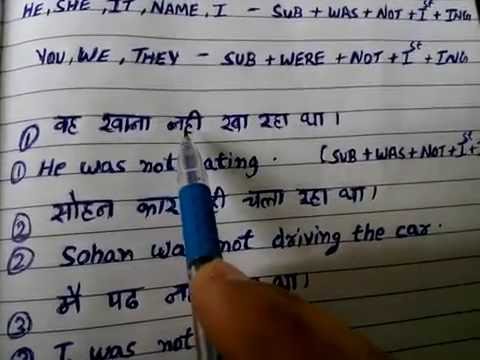 HE, SHE, IT, NAME, I - SUB + WAS + NOT + I st + ING
YOU, WE, THEY - SUB + WERE + NOT + I st + ING
① वह खाना नही खा रहा था।
① He was not eating. (SUB + WAS + NOT + I st +
② सोहन कार नही चला रहा था।
② Sohan was not driving the car.
③ मै पढ था।
I was not